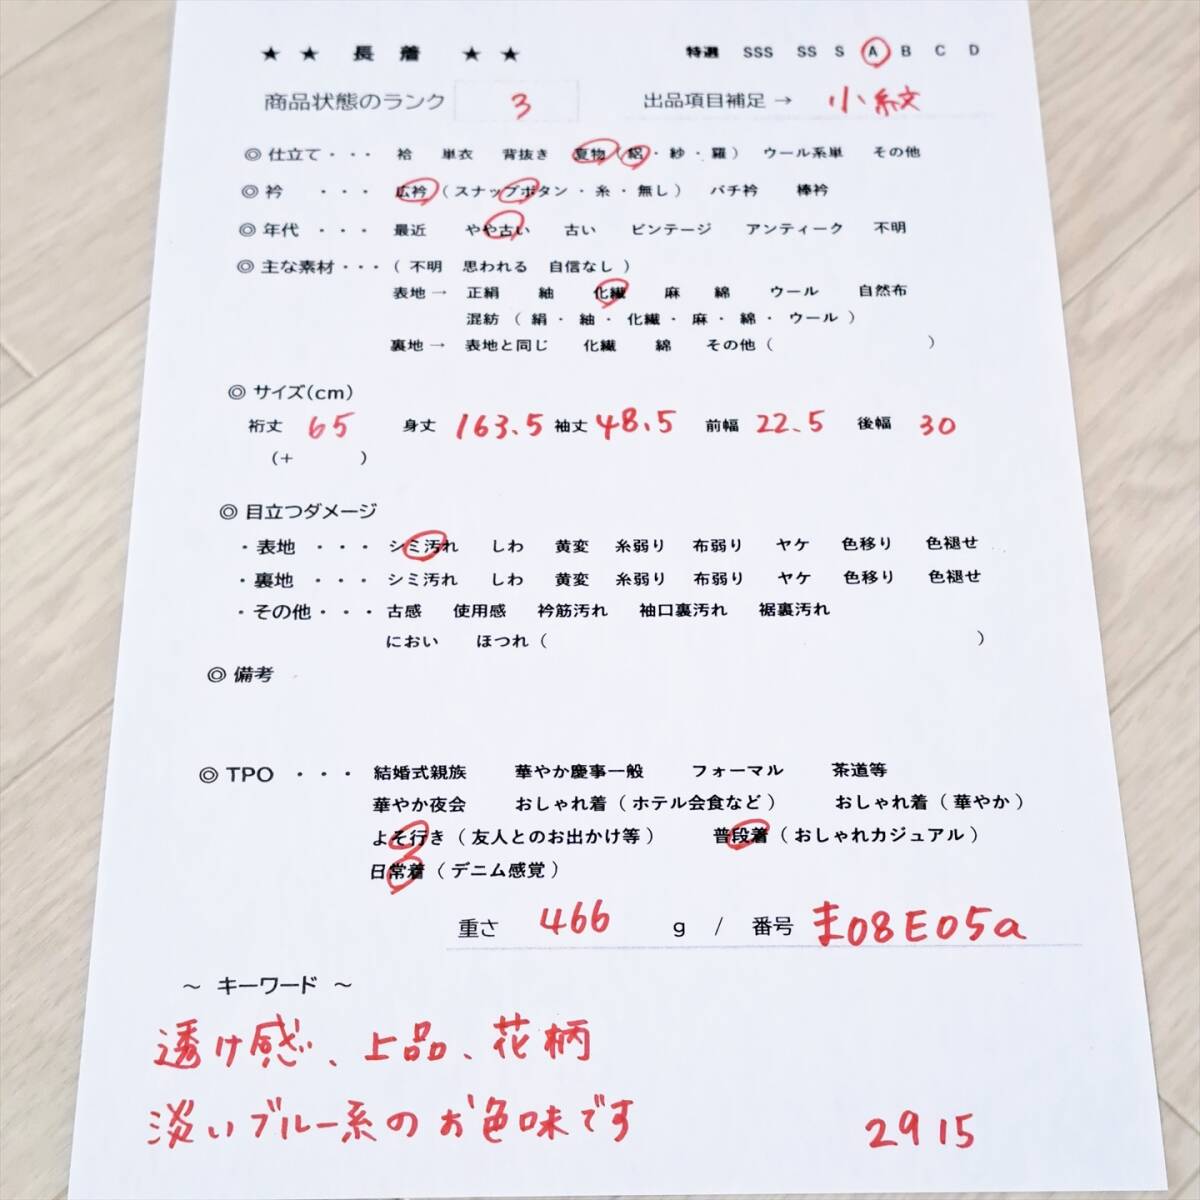 ★ ★ 長 着 ★ ★ 特選 SSS SS S A B C D
商品状態のランク 3 出品項目補足 → 小紋
◎ 仕立て・・・ 袷 単衣 背抜き 夏物（絽・紗・羅） ウール系単 その他
◎ 衿 ・・・ 広衿（スナップボタン・糸・無し） バチ衿 棒衿
◎ 年代 ・・・ 最近 やや古い 古い ビンテージ アンティーク 不明
◎ 主な素材・・・（ 不明 思われる 自信なし ）
表地 → 正絹 紬 化繊 麻 綿 ウール 自然布
混紡 （ 絹・紬・化繊・麻・綿・ウール ）
裏地 → 表地と同じ 化繊 綿 その他（ ）
◎ サイズ(cm)
裄丈 65 身丈 163.5 袖丈 48.5 前幅 22.5 後幅 30
（＋ ）
◎ 目立つダメージ
・表地 ・・・ シミ汚れ しわ 黄変 糸弱り 布弱り ヤケ 色移り 色褪せ
・裏地 ・・・ シミ汚れ しわ 黄変 糸弱り 布弱り ヤケ 色移り 色褪せ
・その他・・・ 古感 使用感 衿筋汚れ 袖口裏汚れ 裾裏汚れ
におい ほつれ（ ）
◎ 備考
◎ TPO ・・・ 結婚式親族 華やか慶事一般 フォーマル 茶道等
華やか夜会 おしゃれ着（ホテル会食など） おしゃれ着（華やか）
よそ行き（友人とのお出かけ等） 普段着（おしゃれカジュアル）
日常着（デニム感覚）
重さ 466 g / 番号 ま08E05a
～ キーワード ～
透け感、上品、花柄
淡いブルー系のお色味です
2915